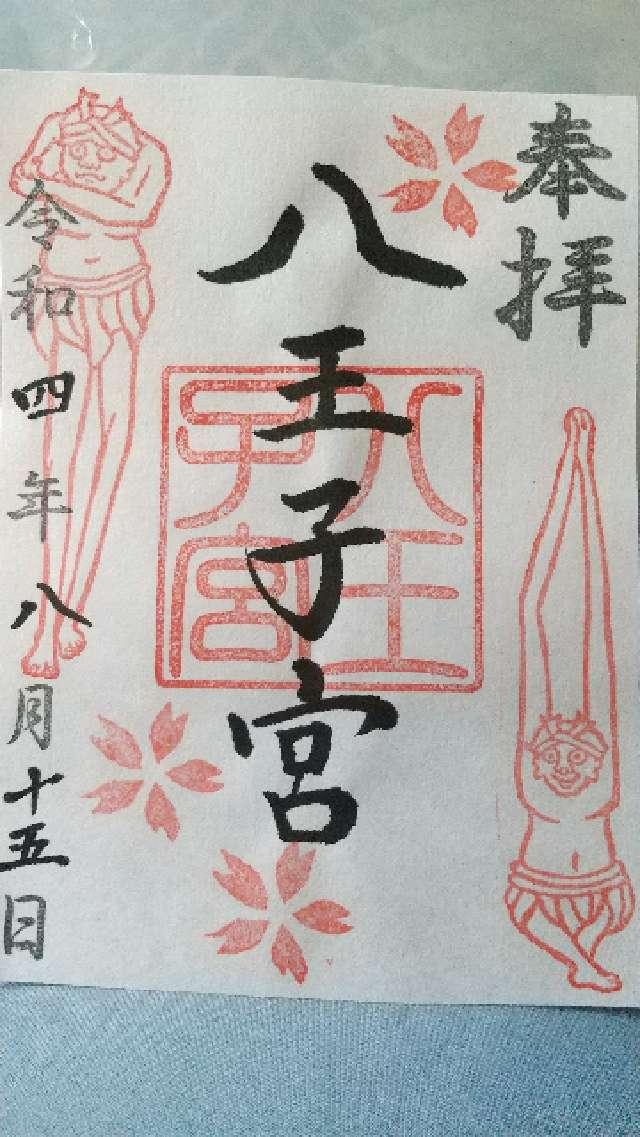 奉拝
八王子宮
八王子宮
令和四年八月十五日